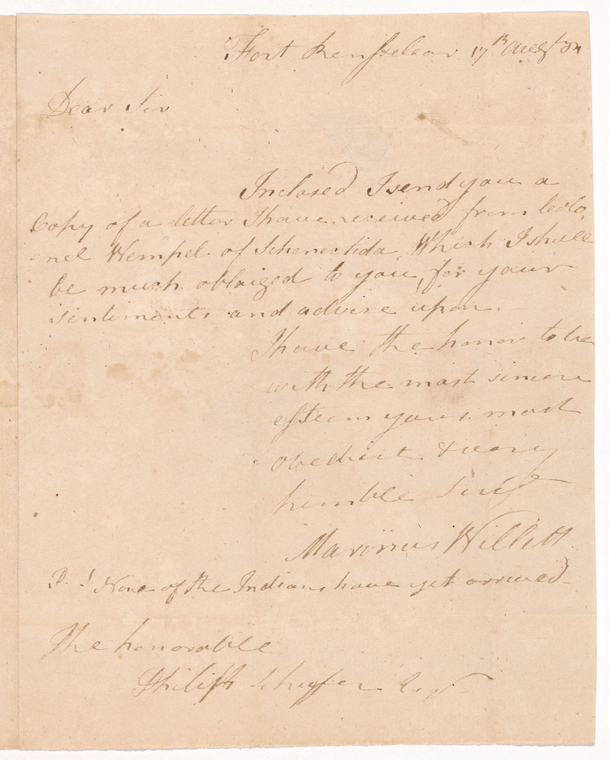 Fort Rensselear 17th Augt 84
Dear Sir
Inclosed I send you a
Copy of a letter I have received from Colo
nel Wempel of Schenectida Which I shall
be much oblaiged to you, for your
sentiments and advise upon.
I have the honor to be
with the most sincere
esteem your most
obedient & very
humble Servt
Marinus Willett
P. S None of the Indians have yet arrived
The honorable
Philip Schuyler Esqr